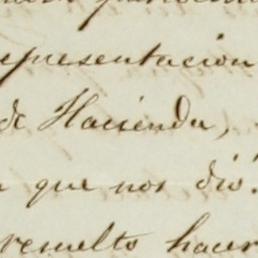 representacion
de Hacienda,
que nos dió.
resuelto hacer